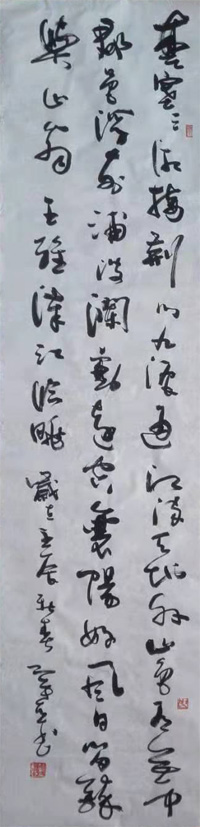 楚塞三湘接荆门九派通江流天地外山色有无中
郡邑浮前浦波澜動遠空襄陽好风日留醉
與山翁 王維漢江临眺 歲在壬辰新春 书